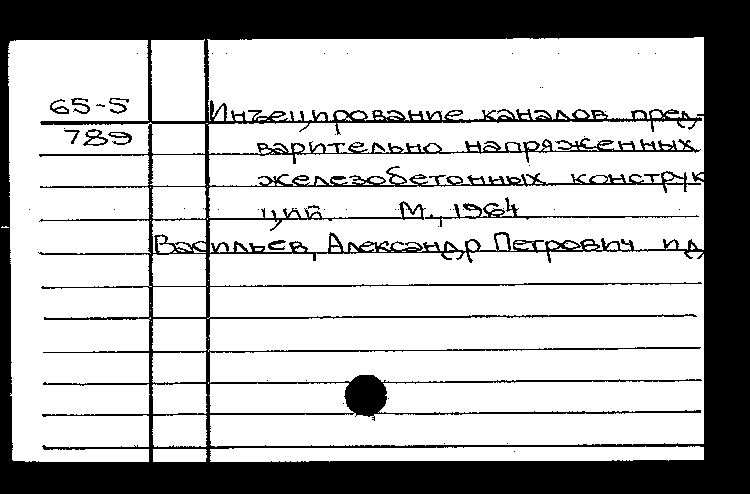 65-5 Инъецирование каналов пред-
789 варительно напряженных
железобетонных конструк
ций. М., 1964
Васильев, Александр Петрович